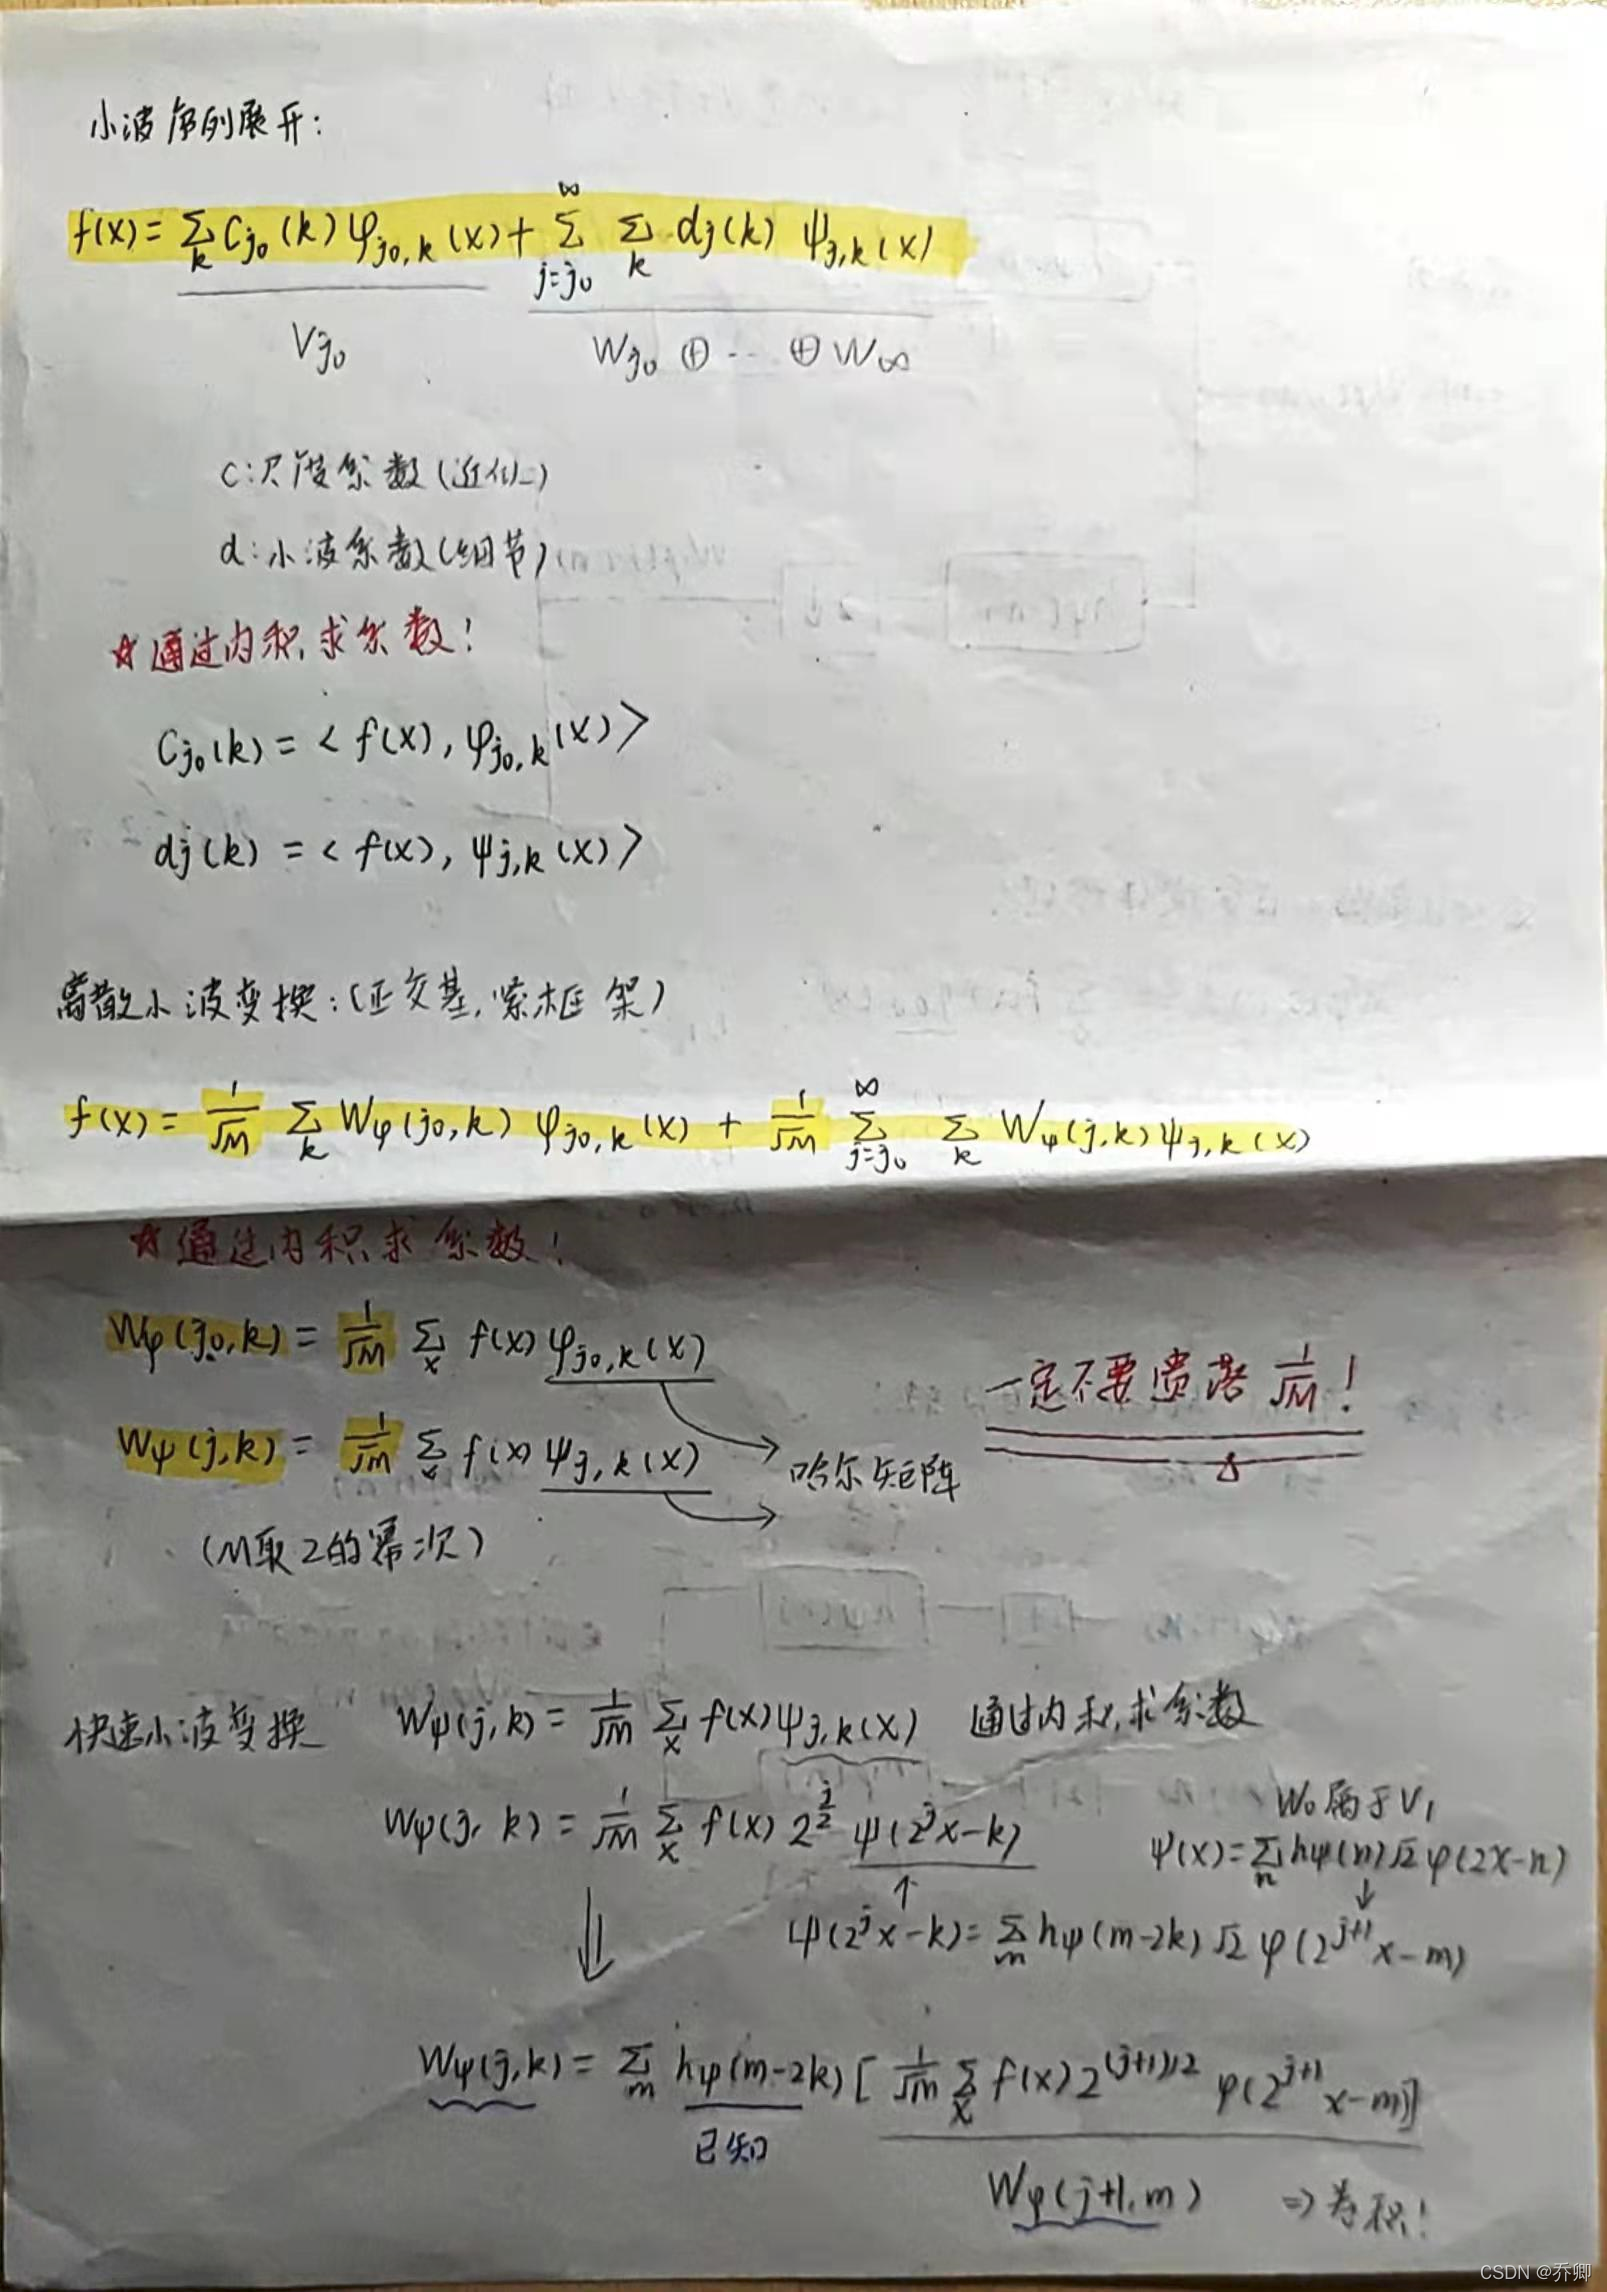 小波序列展开:
f(x) = Σ_k C_{j0}(k) φ_{j0,k}(x) + Σ_{j=j0}^{∞} Σ_k dj(k) ψ_{j,k}(x)
V_{j0} W_{j0} ⊕ ··· ⊕ W_∞
c:尺度系数(近似)
d:小波系数(细节)
☆通过内积求系数!
C_{j0}(k) = < f(x), φ_{j0,k}(x) >
dj(k) = < f(x), ψ_{j,k}(x) >
离散小波变换:(正交基,紧框架)
f(x) = 1/√M Σ_k Wφ(j0,k) φ_{j0,k}(x) + 1/√M Σ_{j=j0}^{∞} Σ_k Wψ(j,k) ψ_{j,k}(x)
☆通过内积求系数!
Wφ(j0,k) = 1/√M Σ_x f(x) φ_{j0,k}(x)
一定不要 1/√M!
Wψ(j,k) = 1/√M Σ_x f(x) ψ_{j,k}(x)
哈尔矩阵
(M取2的幂次)
快速小波变换 Wψ(j,k) = 1/√M Σ_x f(x) ψ_{j,k}(x) 通过内积求系数
W0属于V1
Wψ(j,k) = 1/√M Σ_x f(x) 2^{j/2} ψ(2^j x-k)
ψ(x) = Σ_n hψ(n) √2 φ(2x-n)
ψ(2^j x-k) = Σ_m hψ(m-2k) √2 φ(2^{j+1} x-m)
Wψ(j,k) = Σ_m hψ(m-2k) [ 1/√M Σ_x f(x) 2^{(j+1)/2} φ(2^{j+1} x-m)]
已知
Wφ(j+1,m) ⇒ 卷积!
CSDN @乔卿